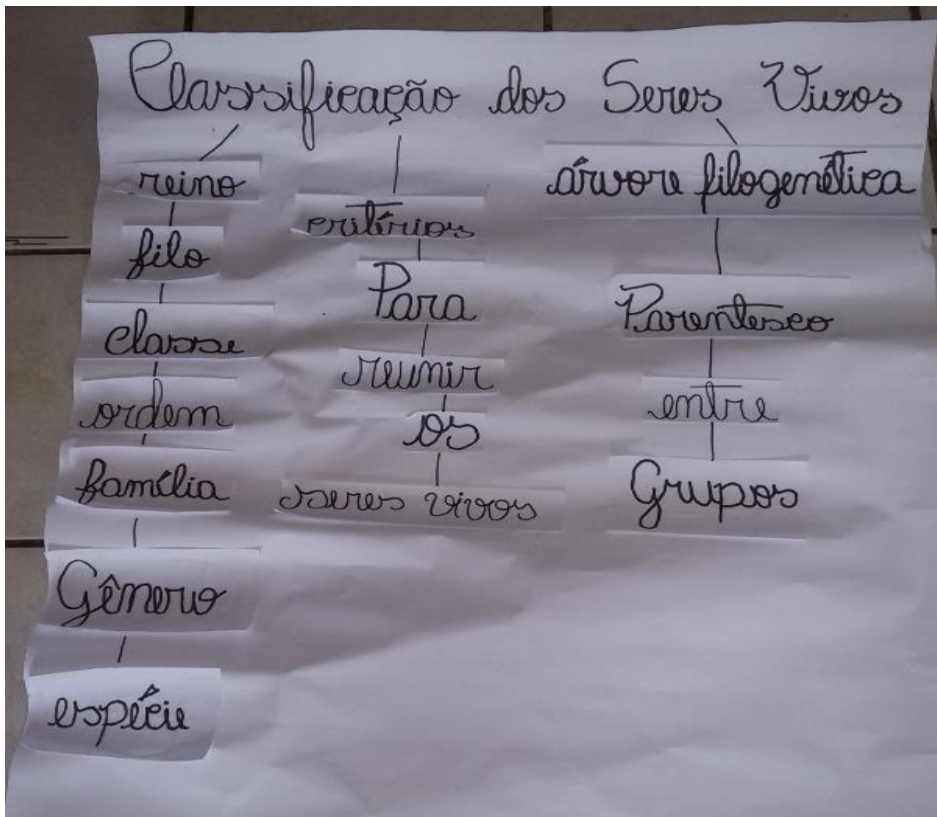 Classificação dos Seres Vivos
reino
filo
classe
ordem
família
Gênero
espécie
critérios
Para
reunir
os
seres vivos
árvore filogenética
Parentesco
entre
Grupos